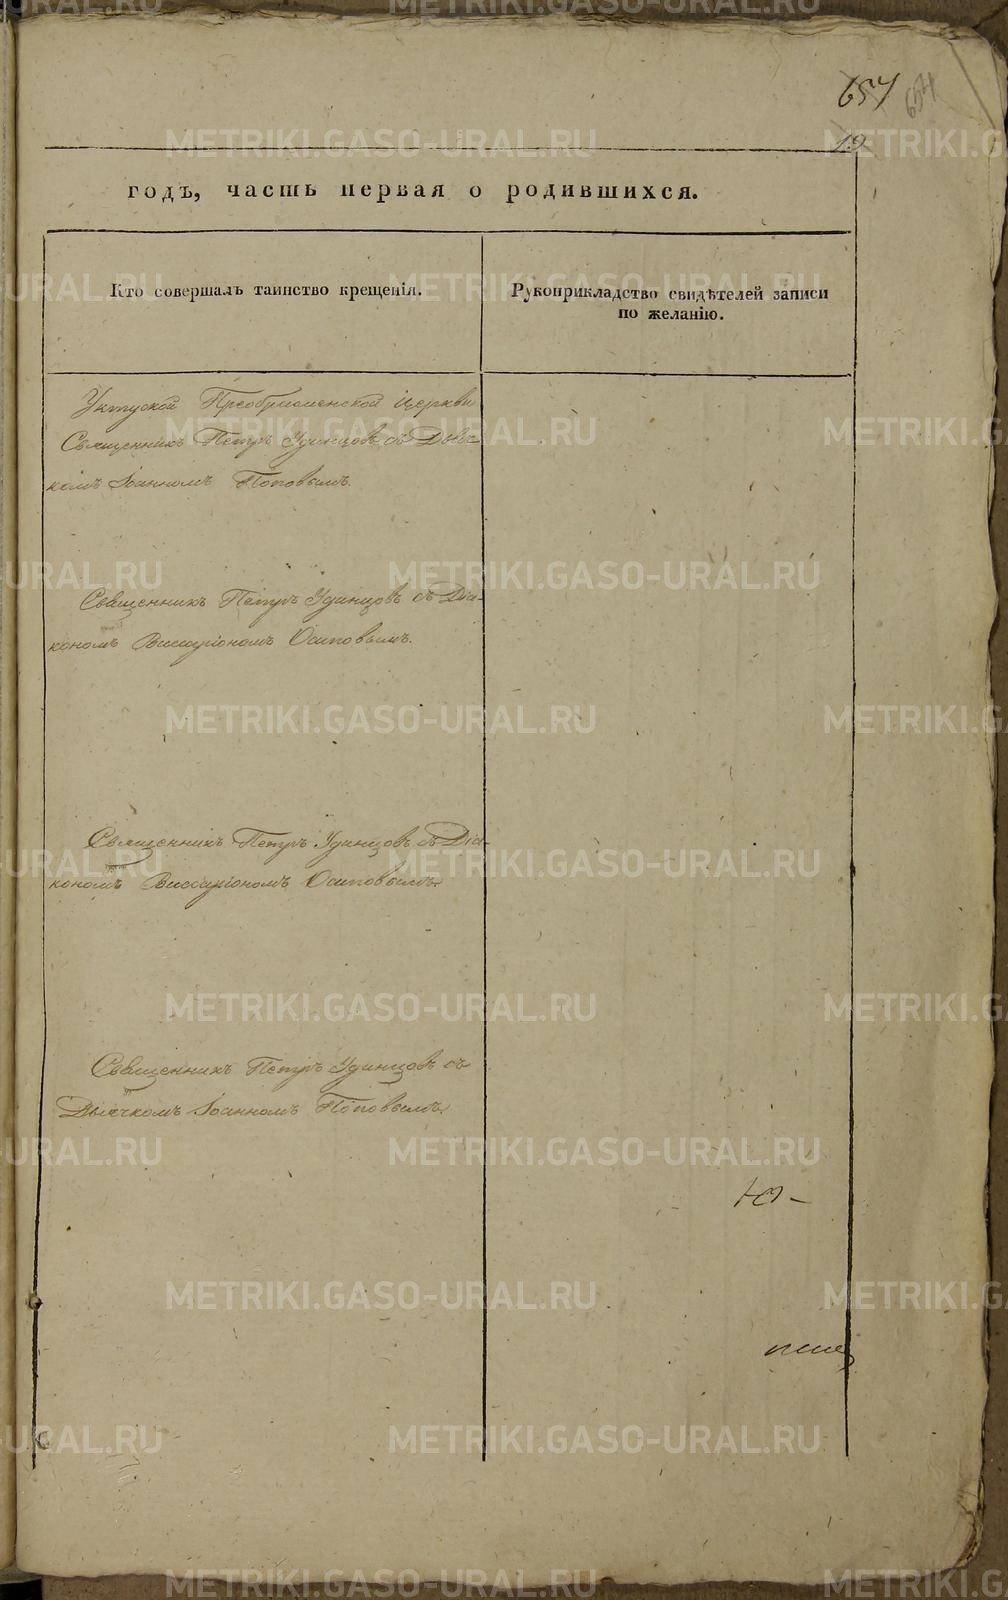 654
654
19
годъ, часть первая о родившихся.
Кто совершалъ таинство крещенія.
Рукоприкладство свидѣтелей записи
по желанію.
Уктуской Преображенской Церкви
Священникъ Петръ Удинцовъ съ Дьяч-
комъ Іоанномъ Поповымъ.
Священникъ Петръ Удинцовъ съ Діа-
кономъ Виссаріономъ Осиповымъ.
Священникъ Петръ Удинцовъ съ Діа-
кономъ Виссаріономъ Осиповымъ.
Священникъ Петръ Удинцовъ съ
Дьячкомъ Іоанномъ Поповымъ.
METRIKI.GASO-URAL.RU